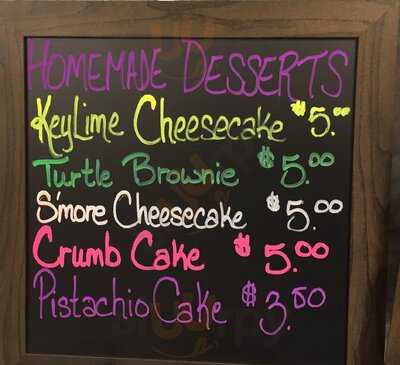 Homemade Desserts
KeyLime Cheesecake $5.00
Turtle Brownie $5.00
S'more Cheesecake $5.00
Crumb Cake $5.00
Pistachio Cake $3.50